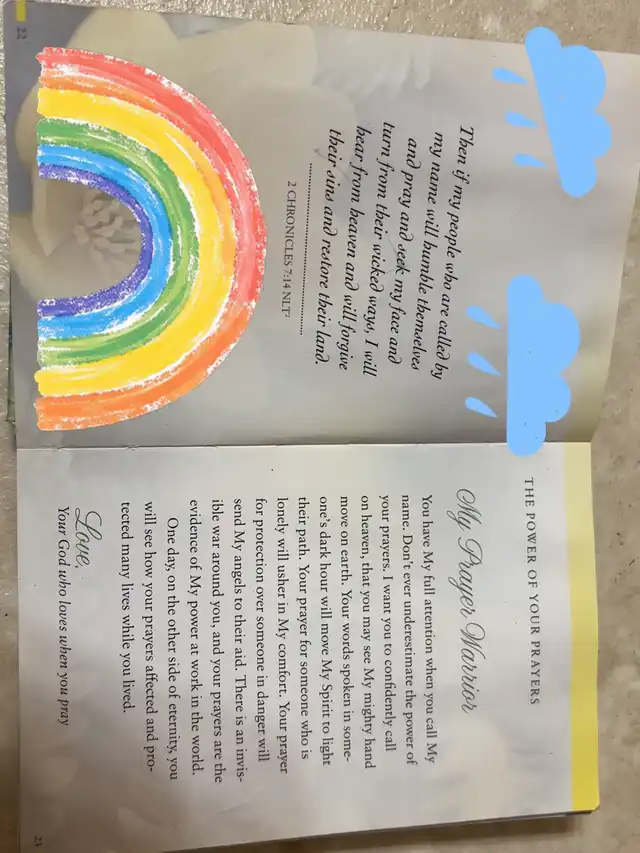 Then if my people who are called by
my name will humble themselves
and pray and seek my face and
turn from their wicked ways, I will
hear from heaven and will forgive
their sins and restore their land.
2 CHRONICLES 7:14 NLT²
22
THE POWER OF YOUR PRAYERS
My Prayer Warrior
You have My full attention when you call My
name. Don't ever underestimate the power of
your prayers. I want you to confidently call
on heaven, that you may see My mighty hand
move on earth. Your words spoken in some-
one's dark hour will move My Spirit to light
their path. Your prayer for someone who is
lonely will usher in My comfort. Your prayer
for protection over someone in danger will
send My angels to their aid. There is an invis-
ible war around you, and your prayers are the
evidence of My power at work in the world.
One day, on the other side of eternity, you
will see how your prayers affected and pro-
tected many lives while you lived.
Love,
Your God who loves when you pray
23